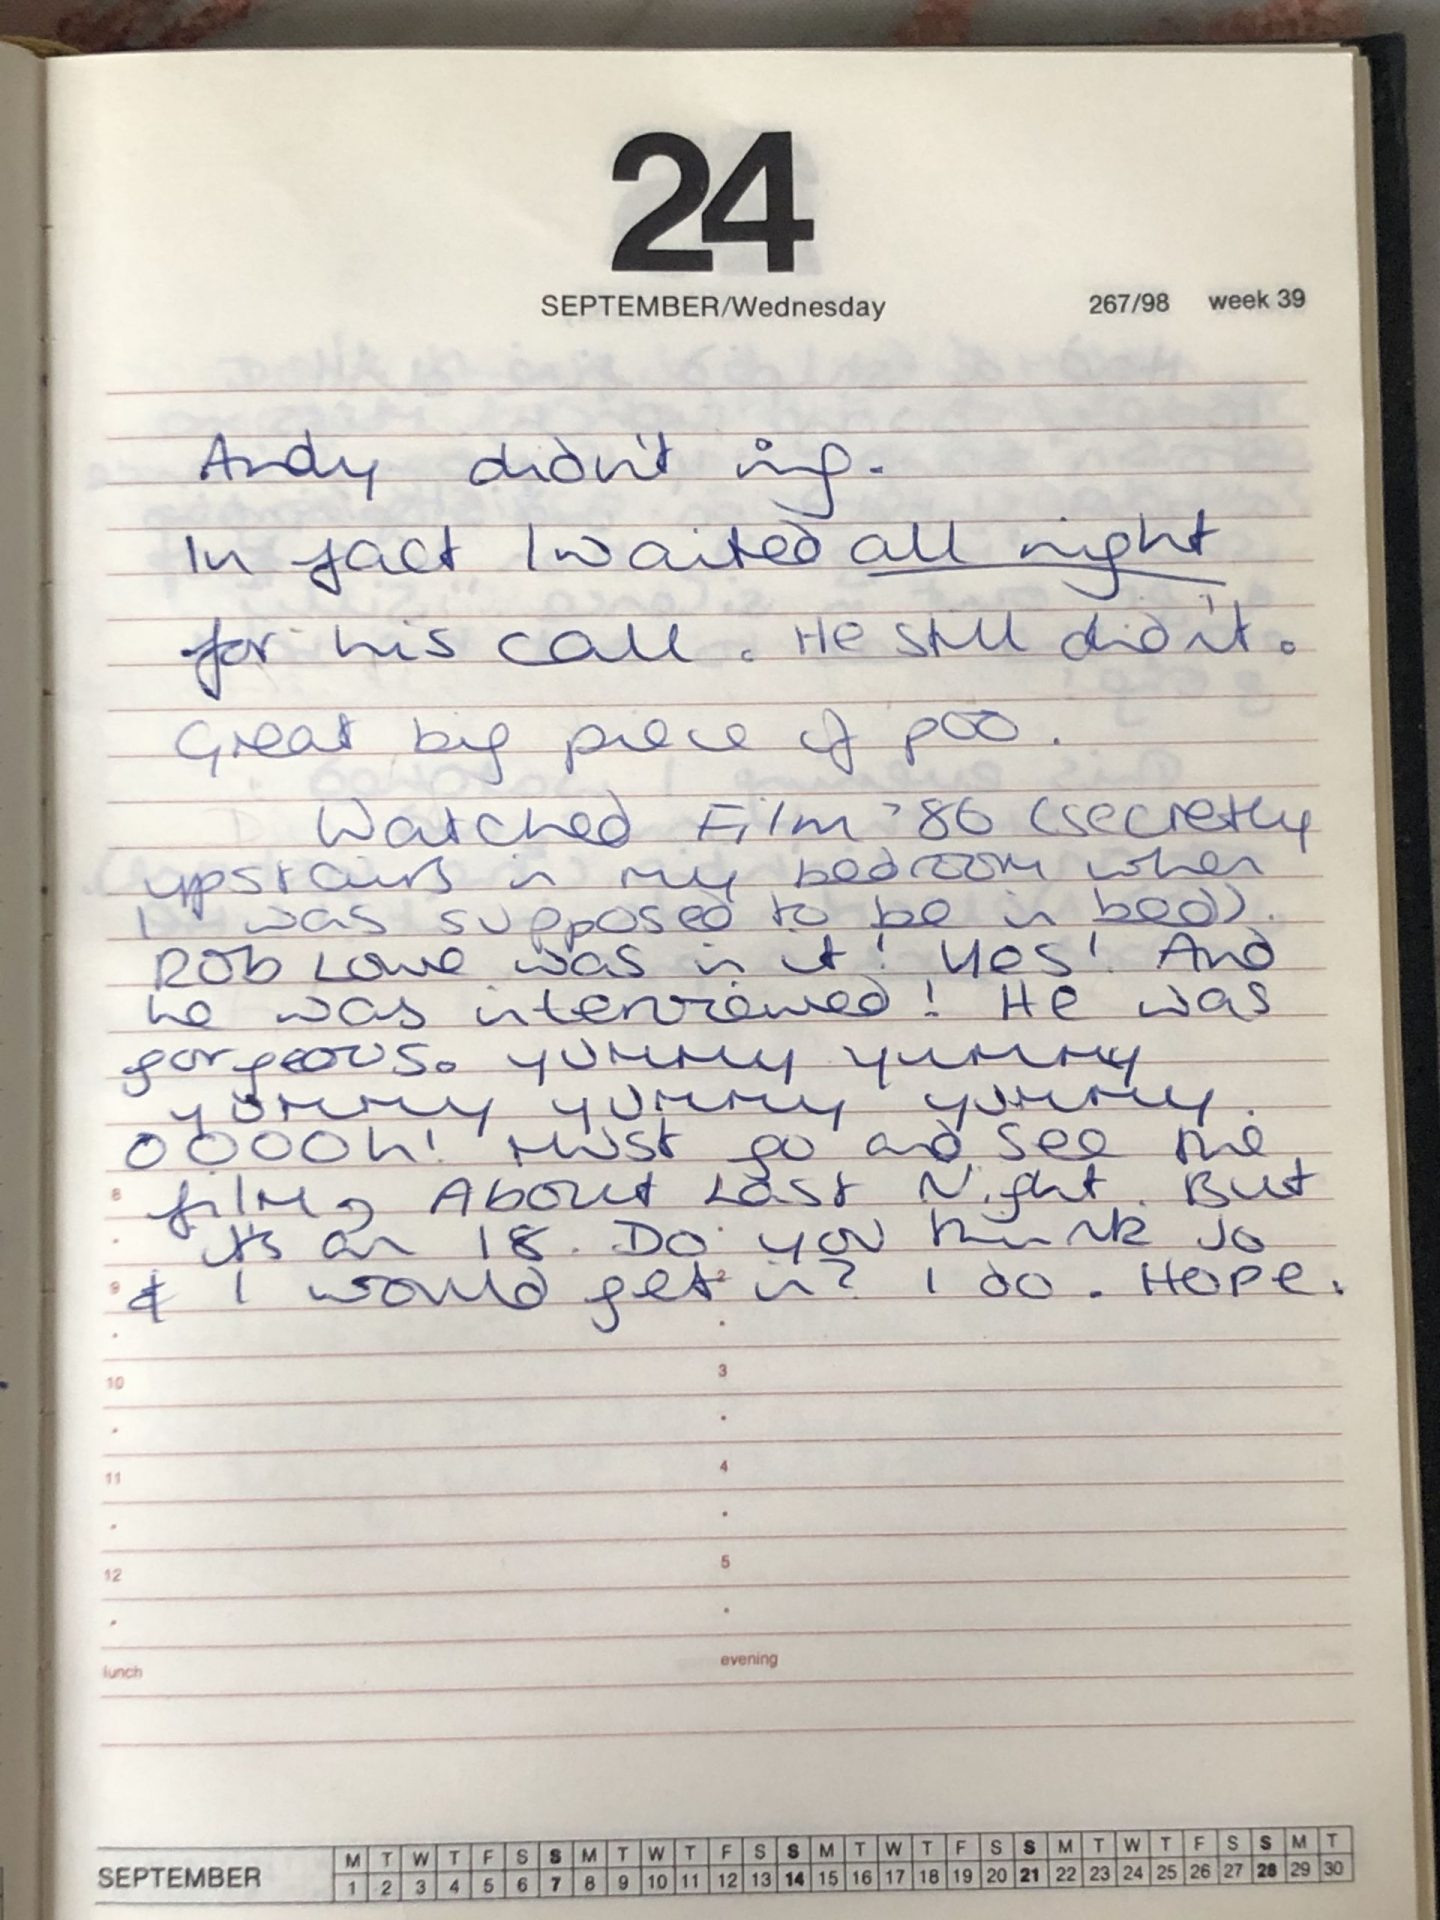 24
SEPTEMBER/Wednesday 267/98 week 39
Andy didn't ring.
In fact I waited all night
for his call. He still didn't.
Great big piece of poo.
Watched Film '86 (secretly
upstairs in my bedroom when
I was supposed to be in bed).
Rob Lowe was in it! Yes! And
he was interviewed! He was
gorgeous. yummy yummy
yummy yummy yummy.
OOOOh! Must go and see the
8 film, About Last Night. But
its an 18. Do you think Jo
9 & I would get in? I do. Hope. 2
10 3
11 4
12 5
lunch evening
SEPTEMBER M T W T F S S M T W T F S S M T W T F S S M T W T F S S M T
1 2 3 4 5 6 7 8 9 10 11 12 13 14 15 16 17 18 19 20 21 22 23 24 25 26 27 28 29 30